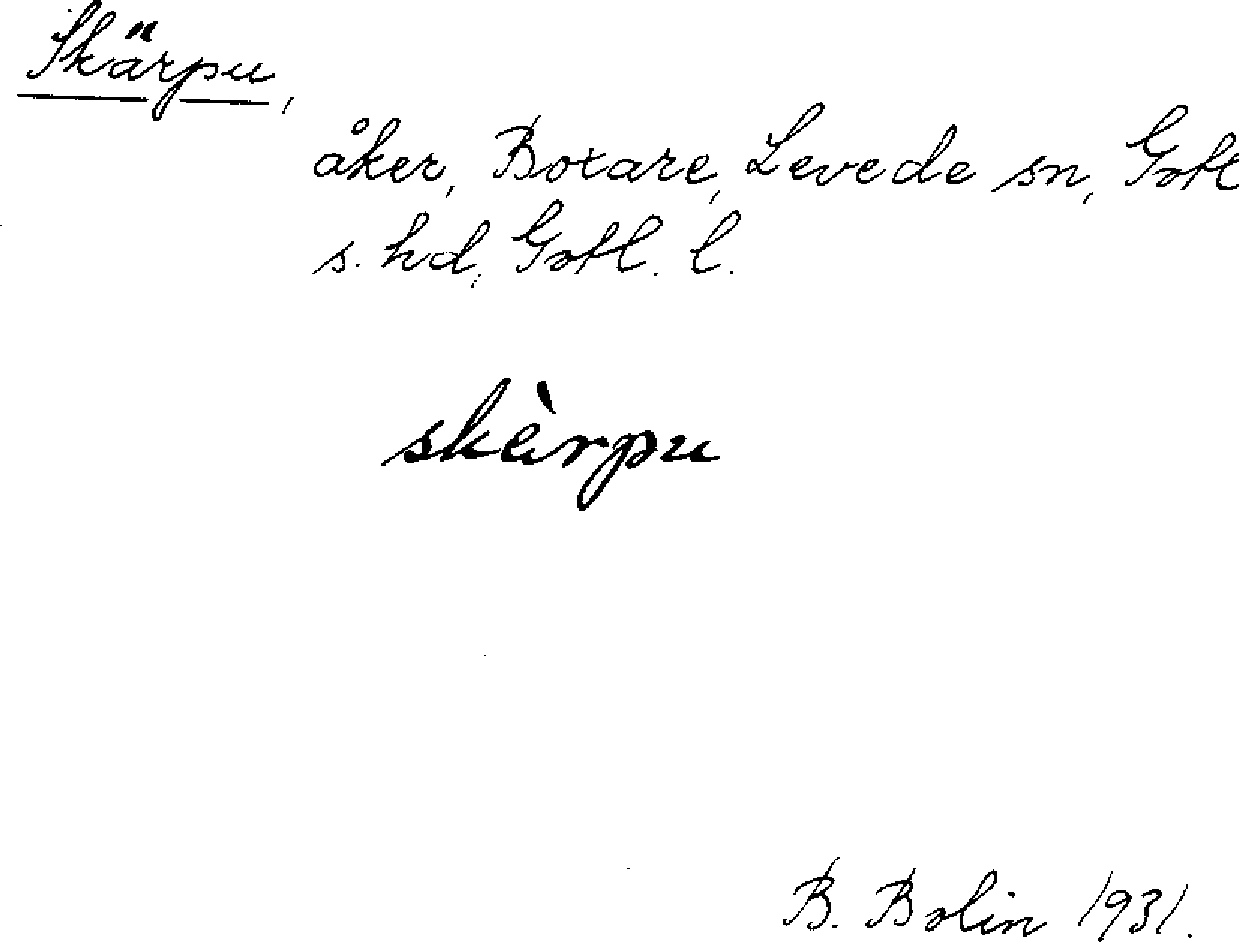 Skärpu,
åker, Botare, Levede sn, Gotl
s. hd, Gotl. l.
skèrpu
B. Bolin 1931.